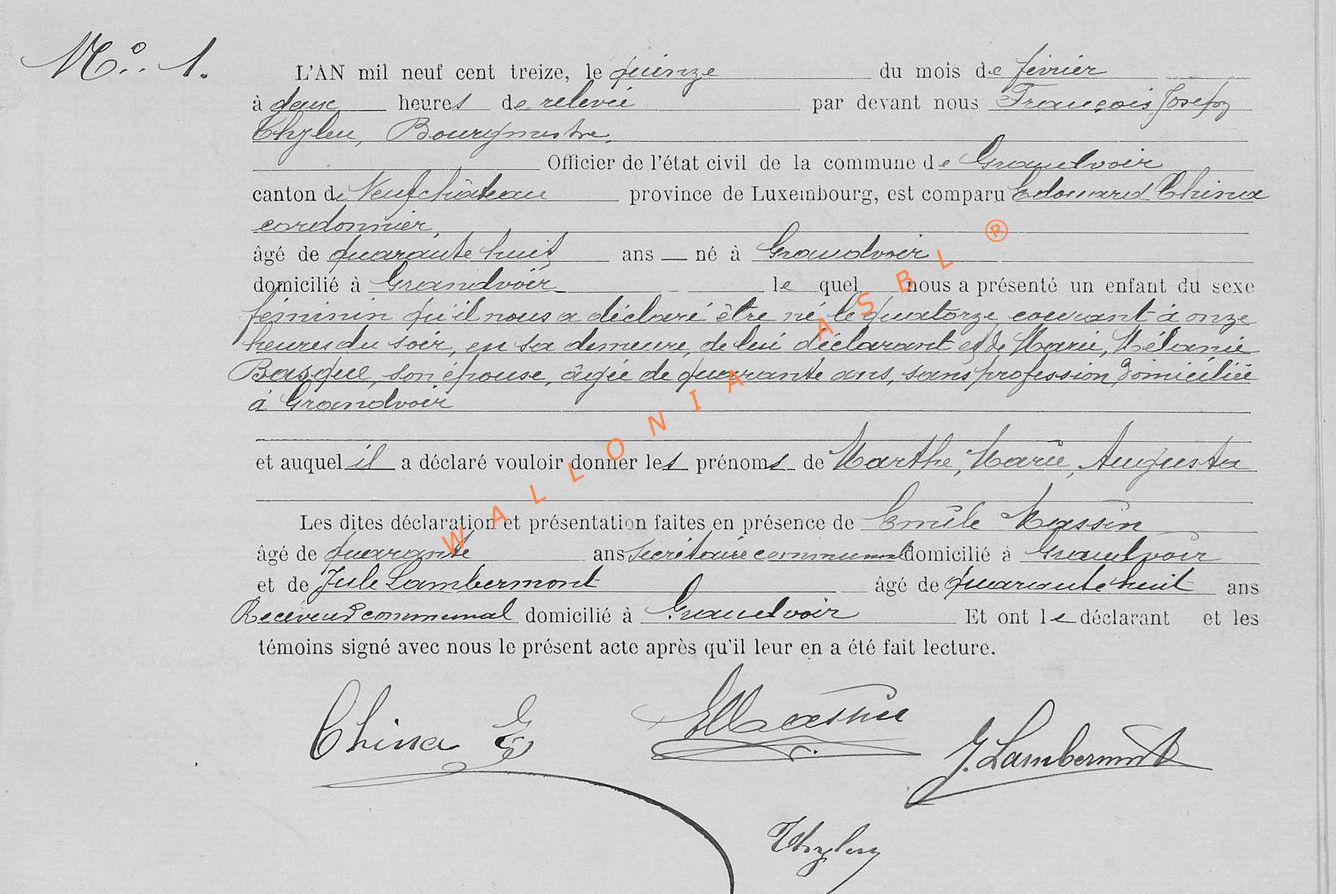 No. 1.
L'AN mil neuf cent treize, le quinze du mois de février
à deux heures de relevée par devant nous François Joseph
Bourgmestre,
Officier de l'état civil de la commune de Grandvoir
canton de Neufchâteau province de Luxembourg, est comparu Edouard China
cordonnier,
âgé de quarante huit ans né à Grandvoir
domicilié à Grandvoir le quel nous a présenté un enfant du sexe
féminin qu'il nous a déclaré être né le quatorze courant à onze
heures du soir, en sa demeure, de lui déclarant et de Marie, Mélanie
son épouse, âgée de quarante ans, sans profession domiciliée
à Grandvoir
et auquel il a déclaré vouloir donner les prénoms de Marthe, Marie, Augusta
Les dites déclaration et présentation faites en présence de Emile Massin
âgé de quarante ans secrétaire communal domicilié à Grandvoir
et de Jule Lambermont âgé de quarante huit ans
Receveur communal domicilié à Grandvoir Et ont le déclarant et les
témoins signé avec nous le présent acte après qu'il leur en a été fait lecture.
China E
EMassin
J. Lambermont
WALLONIA ASBL ®